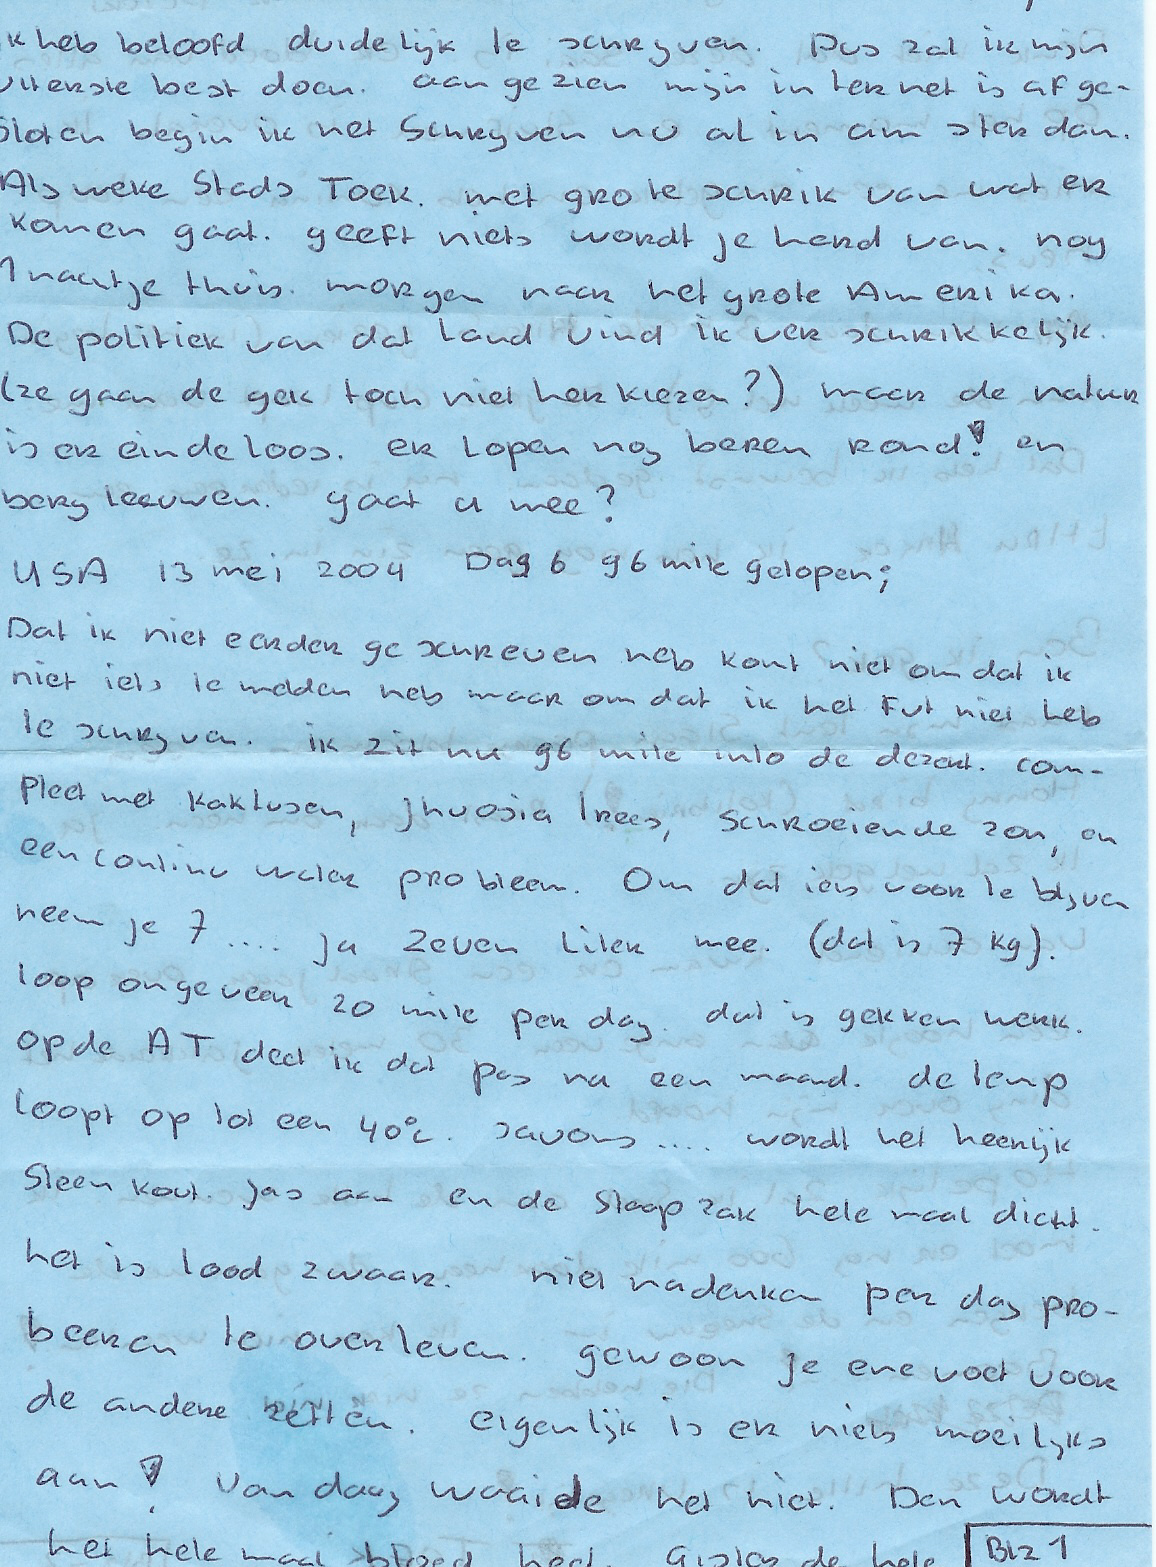 ik heb beloofd duidelijk te schrijven. Dus zal ik mijn
uiterste best doen. aangezien mijn internet is afge-
sloten begin ik het schrijven nu al in amsterdam.
Als weke Stads Toek. met grote schrik van wat er
komen gaat. geeft niets wordt je hard van. nog
1 nachtje thuis. morgen naar het grote Amerika.
De politiek van dat land vind ik verschrikkelijk.
(ze gaan de gek toch niet herkiezen?) maar de natuur
is er eindeloos. er lopen nog beren rond! en
bergleeuwen. gaat u mee?
USA 13 mei 2004 Dag 6 96 mile gelopen;
Dat ik niet eerder geschreven heb komt niet omdat ik
niet iets te melden heb maar omdat ik het Fut niet heb
te schrijven. ik zit nu 96 mile into de desert. com-
pleet met kaktusen, jhuosia trees, schroeiende zon, en
een continu water probleem. Om dat iets voor te blijven
neem je 7 .... ja zeven Liter mee. (dat is 7 kg).
loop ongeveer 20 mile per dag. dat is gekken werk.
op de AT deed ik dat pas na een maand. de temp
loopt op tot een 40°c. savons .... wordt het heerlijk
Steen koud. jas aan en de Slaapzak helemaal dicht.
het is lood zwaar. niet nadenken per dag pro-
beeren te overleven. gewoon je ene voet voor
de andere zetten. eigenlijk is er niets moeilijks
aan! Vandaag waaide het niet. Dan wordt
het helemaal bloed heet. Gisteren de hele
Blz 1